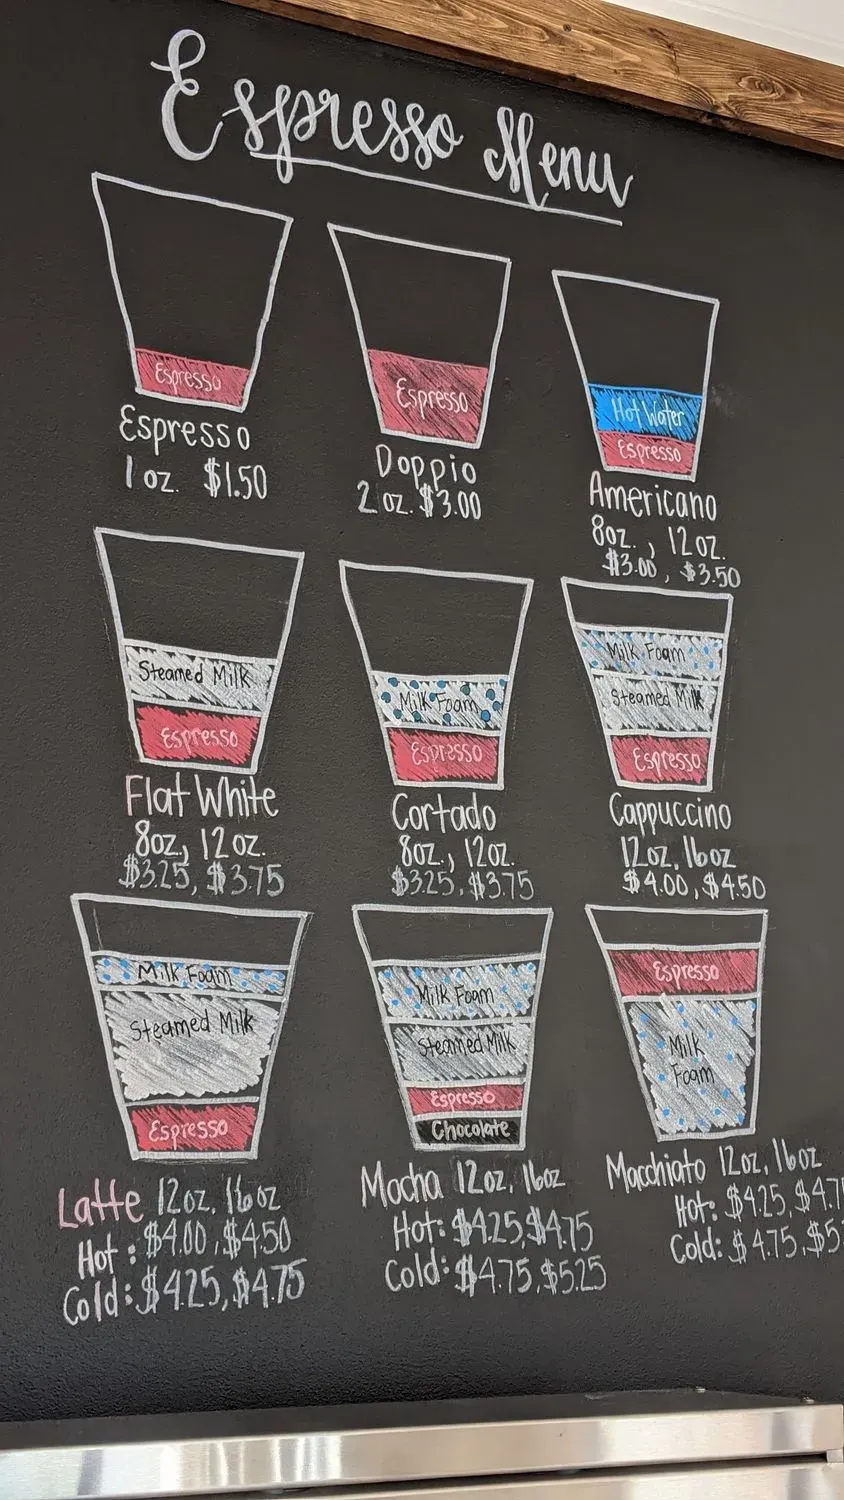 Espresso Menu
Espresso
Espresso
1 oz. $1.50
Espresso
Doppio
2 oz. $3.00
Hot Water
Espresso
Americano
8oz., 12oz.
$3.00, $3.50
Steamed Milk
Espresso
Flat White
8oz., 12oz.
$3.25, $3.75
Milk Foam
Espresso
Cortado
8oz., 12oz.
$3.25, $3.75
Milk Foam
Steamed Milk
Espresso
Cappuccino
12oz, 16oz
$4.00, $4.50
Milk Foam
Steamed Milk
Espresso
Latte 12oz, 16oz
Hot: $4.00, $4.50
Cold: $4.25, $4.75
Milk Foam
Steamed Milk
Espresso
Chocolate
Mocha 12oz, 16oz
Hot: $4.25, $4.75
Cold: $4.75, $5.25
Espresso
Milk
Foam
Macchiato 12oz, 16oz
Hot: $4.25, $4.7
Cold: $4.75, $5.